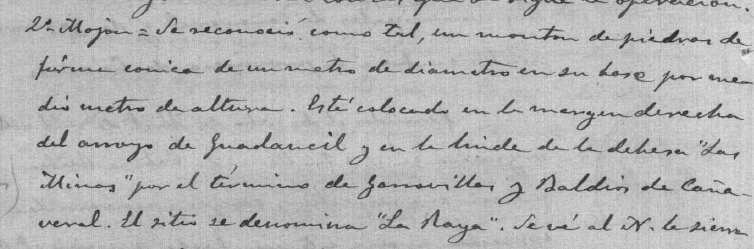 que se sigue la operación.
2º Mojón = Se reconoció como tal, un monton de piedras de
forma conica de un metro de diametro en su base por me
dio metro de altura. Está colocado en la margen derecha
del arroyo de Guadancil y en la linde de la dehesa "Las
Minas" por el término de Garrovillas y Baldios de Caña
veral. El sitio se denomina "La Raya". Se vé al N. la sierra